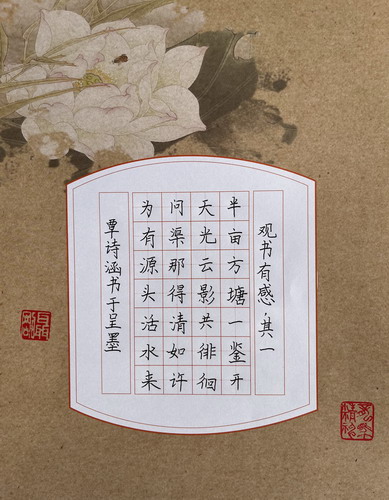 观书有感·其一
半亩方塘一鉴开
天光云影共徘徊
问渠那得清如许
为有源头活水来
覃诗涵书于呈墨